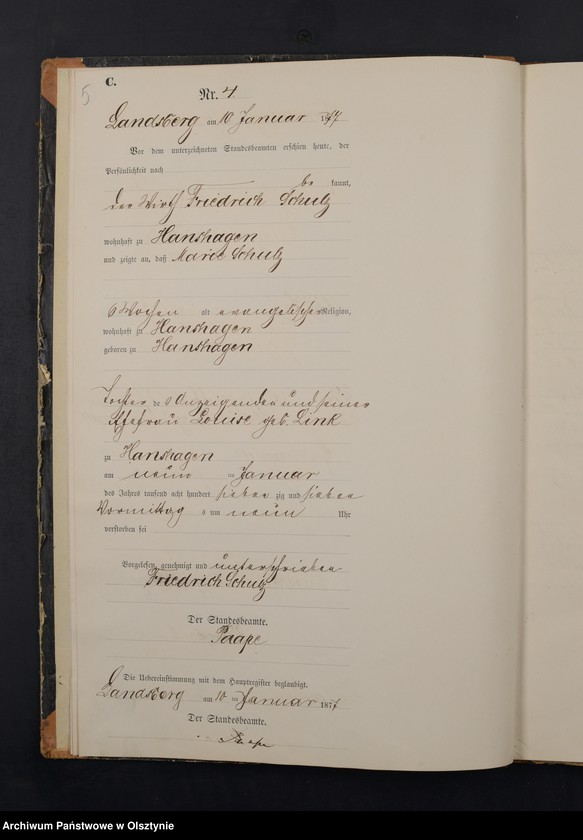 5
C.
Nr. 4.
Landsberg am 10 Januar 1877
Vor dem unterzeichneten Standesbeamten erschien heute, der
Persönlichkeit nach
be kannt,
der Wirth Friedrich Schulz
wohnhaft zu Hanshagen
und zeigte an, daß Marie Schulz
6 Wochen alt evangelischer Religion,
wohnhaft zu Hanshagen
geboren zu Hanshagen
Tochter des Anzeigenden und seiner
Ehefrau Louise geb. Link
zu Hanshagen
am neun ten Januar
des Jahres tausend acht hundert sieben zig und sieben
Vormittag s um neun Uhr
verstorben sei
Vorgelesen, genehmigt und unterschrieben
Friedrich Schulz
Der Standesbeamte.
Paape
Die Uebereinstimmung mit dem Hauptregister beglaubigt.
Landsberg am 10 ten Januar 1877
Der Standesbeamte.
Paape
Archiwum Państwowe w Olsztynie